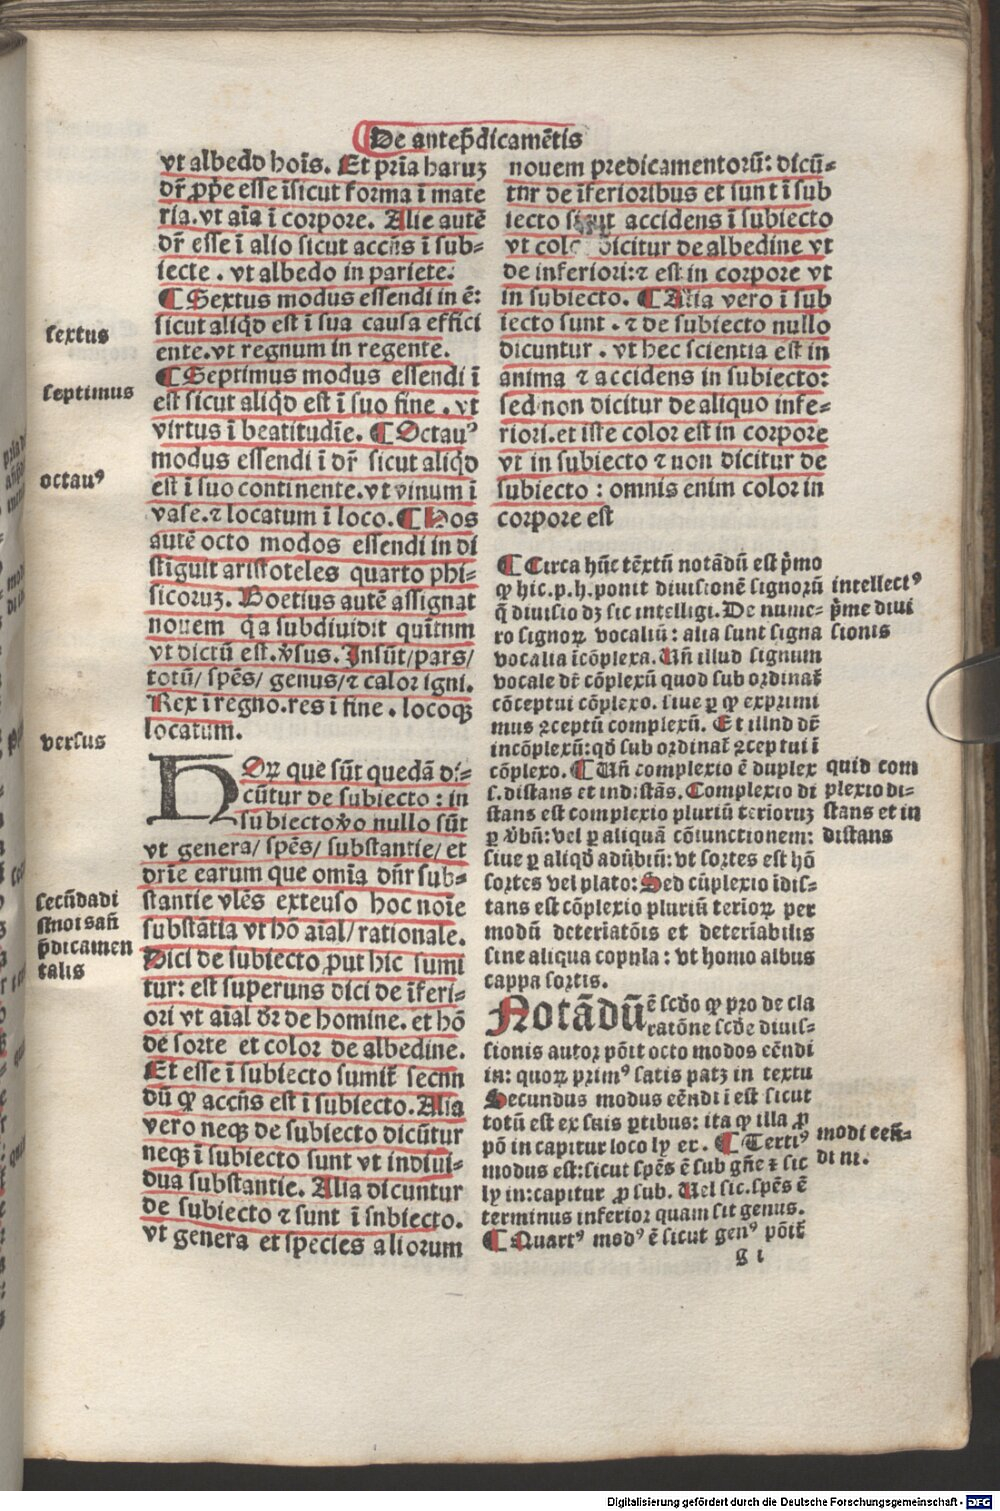 De antep̄dicamētis
vt albedo hoīs. Et prīa haruꝫ
dr̄ ꝓpe esse īsicut forma ī mate
ria. vt aīa ī corpore. Alie autē
dr̄ esse ī alio sicut accn̄s ī sub-
iecte. vt albedo in pariete.
¶ Sextus modus essendi in ē:
sicut aliqd̄ est ī sua causa effici
ente. vt regnum in regente.
¶ Septimus modus essendi ī
est sicut aliqd̄ est ī suo fine. vt
virtus ī beatitudīe. ¶ Octauꝰ
modus essendi ī dr̄ sicut aliqd̄
est ī suo continente. vt vinum ī
vase. ⁊ locatum ī loco. ¶ Hos
autē octo modos essendi in di
stīguit aristoteles quarto phi-
sicoruꝫ. Boetius autē assignat
nouem q̄a subdiuidit quītum
vt dictū est. v̄sus. Insūt/pars/
totū/ spēs/ genus/ ⁊ calor igni.
Rex ī regno. res ī fine. locoqꝫ
locatum.
HOꝝ que sūt quedā di-
cūtur de subiecto: in
subiecto v̄o nullo sūt
vt genera/ spēs/ substantie/ et
dr̄ie earum que omīa dn̄r sub-
stantie vlēs extenso hoc noīe
substātia vt hō aīal/ rationale.
Dici de subiecto ꝓut hic sumi
tur: est superuns dici de īferi-
ori vt aīal dr̄ de homine. et hō
de sorte et color de albedine.
Et esse ī subiecto sumit̄ secun
dū ꝙ accn̄s est ī subiecto. Alia
vero neqꝫ de subiecto dicūtur
neqꝫ ī subiecto sunt vt indiui-
dua substantie. Alia dicuntur
de subiecto ⁊ sunt ī snbiecto.
vt genera et species aliorum
sextus
septimus
octauꝰ
versus
secūdadi
stnoi san̄
p̄dicamen
talis
nouem predicamentorū: dicū-
tur de īferioribus et sunt ī sub
iecto sicut accidens ī subiecto
vt color dicitur de albedine vt
de inferiori: ⁊ est in corpore vt
in subiecto. ¶ Alia vero ī sub
iecto sunt. ⁊ de subiecto nullo
dicuntur. vt hec scientia est in
anima ⁊ accidens in subiecto:
sed non dicitur de aliquo infe-
riori. et iste color est in corpore
vt in subiecto ⁊ non dicitur de
subiecto: omnis enim color in
corpore est
¶ Circa hūc tēxtū notādū est p̄mo
ꝙ hic. p. h. ponit diuisionē signorū
q̄ diuisio dꝫ sic intelligi. De nume-
ro signoꝝ vocaliū: alia sunt signa
vocalia īcōplexa. Un̄ illud signum
vocale dr̄ cōplexū quod sub ordinat̄
cōceptui cōplexo. siue ꝑ ꝙ exprimi
mus ꝯceptū complexū. Et illnd dr̄
incōplexū: qd̄ sub ordinat̄ ꝯcep tui ī
cōplexo. ¶ Un̄ complexio ē duplex
s. distans et ind: stās. Complexio di
stans est complexio pluriū terioruꝫ
ꝑ v̄bū: vel ꝑ aliquā cōiunctionem:
siue ꝑ aliqd̄ adūbiū: vt sortes est hō
sortes vel plato: Sed cūplexio īdis-
tans est cōplexio pluriū terioꝝ per
modū deteriatōis et deteriabilis
sine aliqua copnla: vt homo albus
cappa sortis.
Notādū ē scd̄o ꝙ pro de cla
ratōne scd̄e diuis-
sionis autoꝝ pōit octo modos eēndi
in: quoꝝ primꝰ satis patꝫ in textu
Secundus modus eēndi ī est sicut
totū est ex suis ꝑtibus: ita ꝙ illa ꝓ
pō in capitur loco ly ex. ¶ Tertiꝰ
modus est: sicut spēs ē sub gn̄e ⁊ sic
ly in: capitur ꝓ sub. Uel sic. spēs ē
terminus inferior quam sit genus.
¶ Quartꝰ modꝰ ē sicut genꝰ pōit̄
intellectꝰ
p̄me diui
sionis
quid com
plexio di-
stans et in
distans
modi een̄-
di ni.
g i
Digitalisierung gefördert durch die Deutsche Forschungsgemeinschaft - DFG